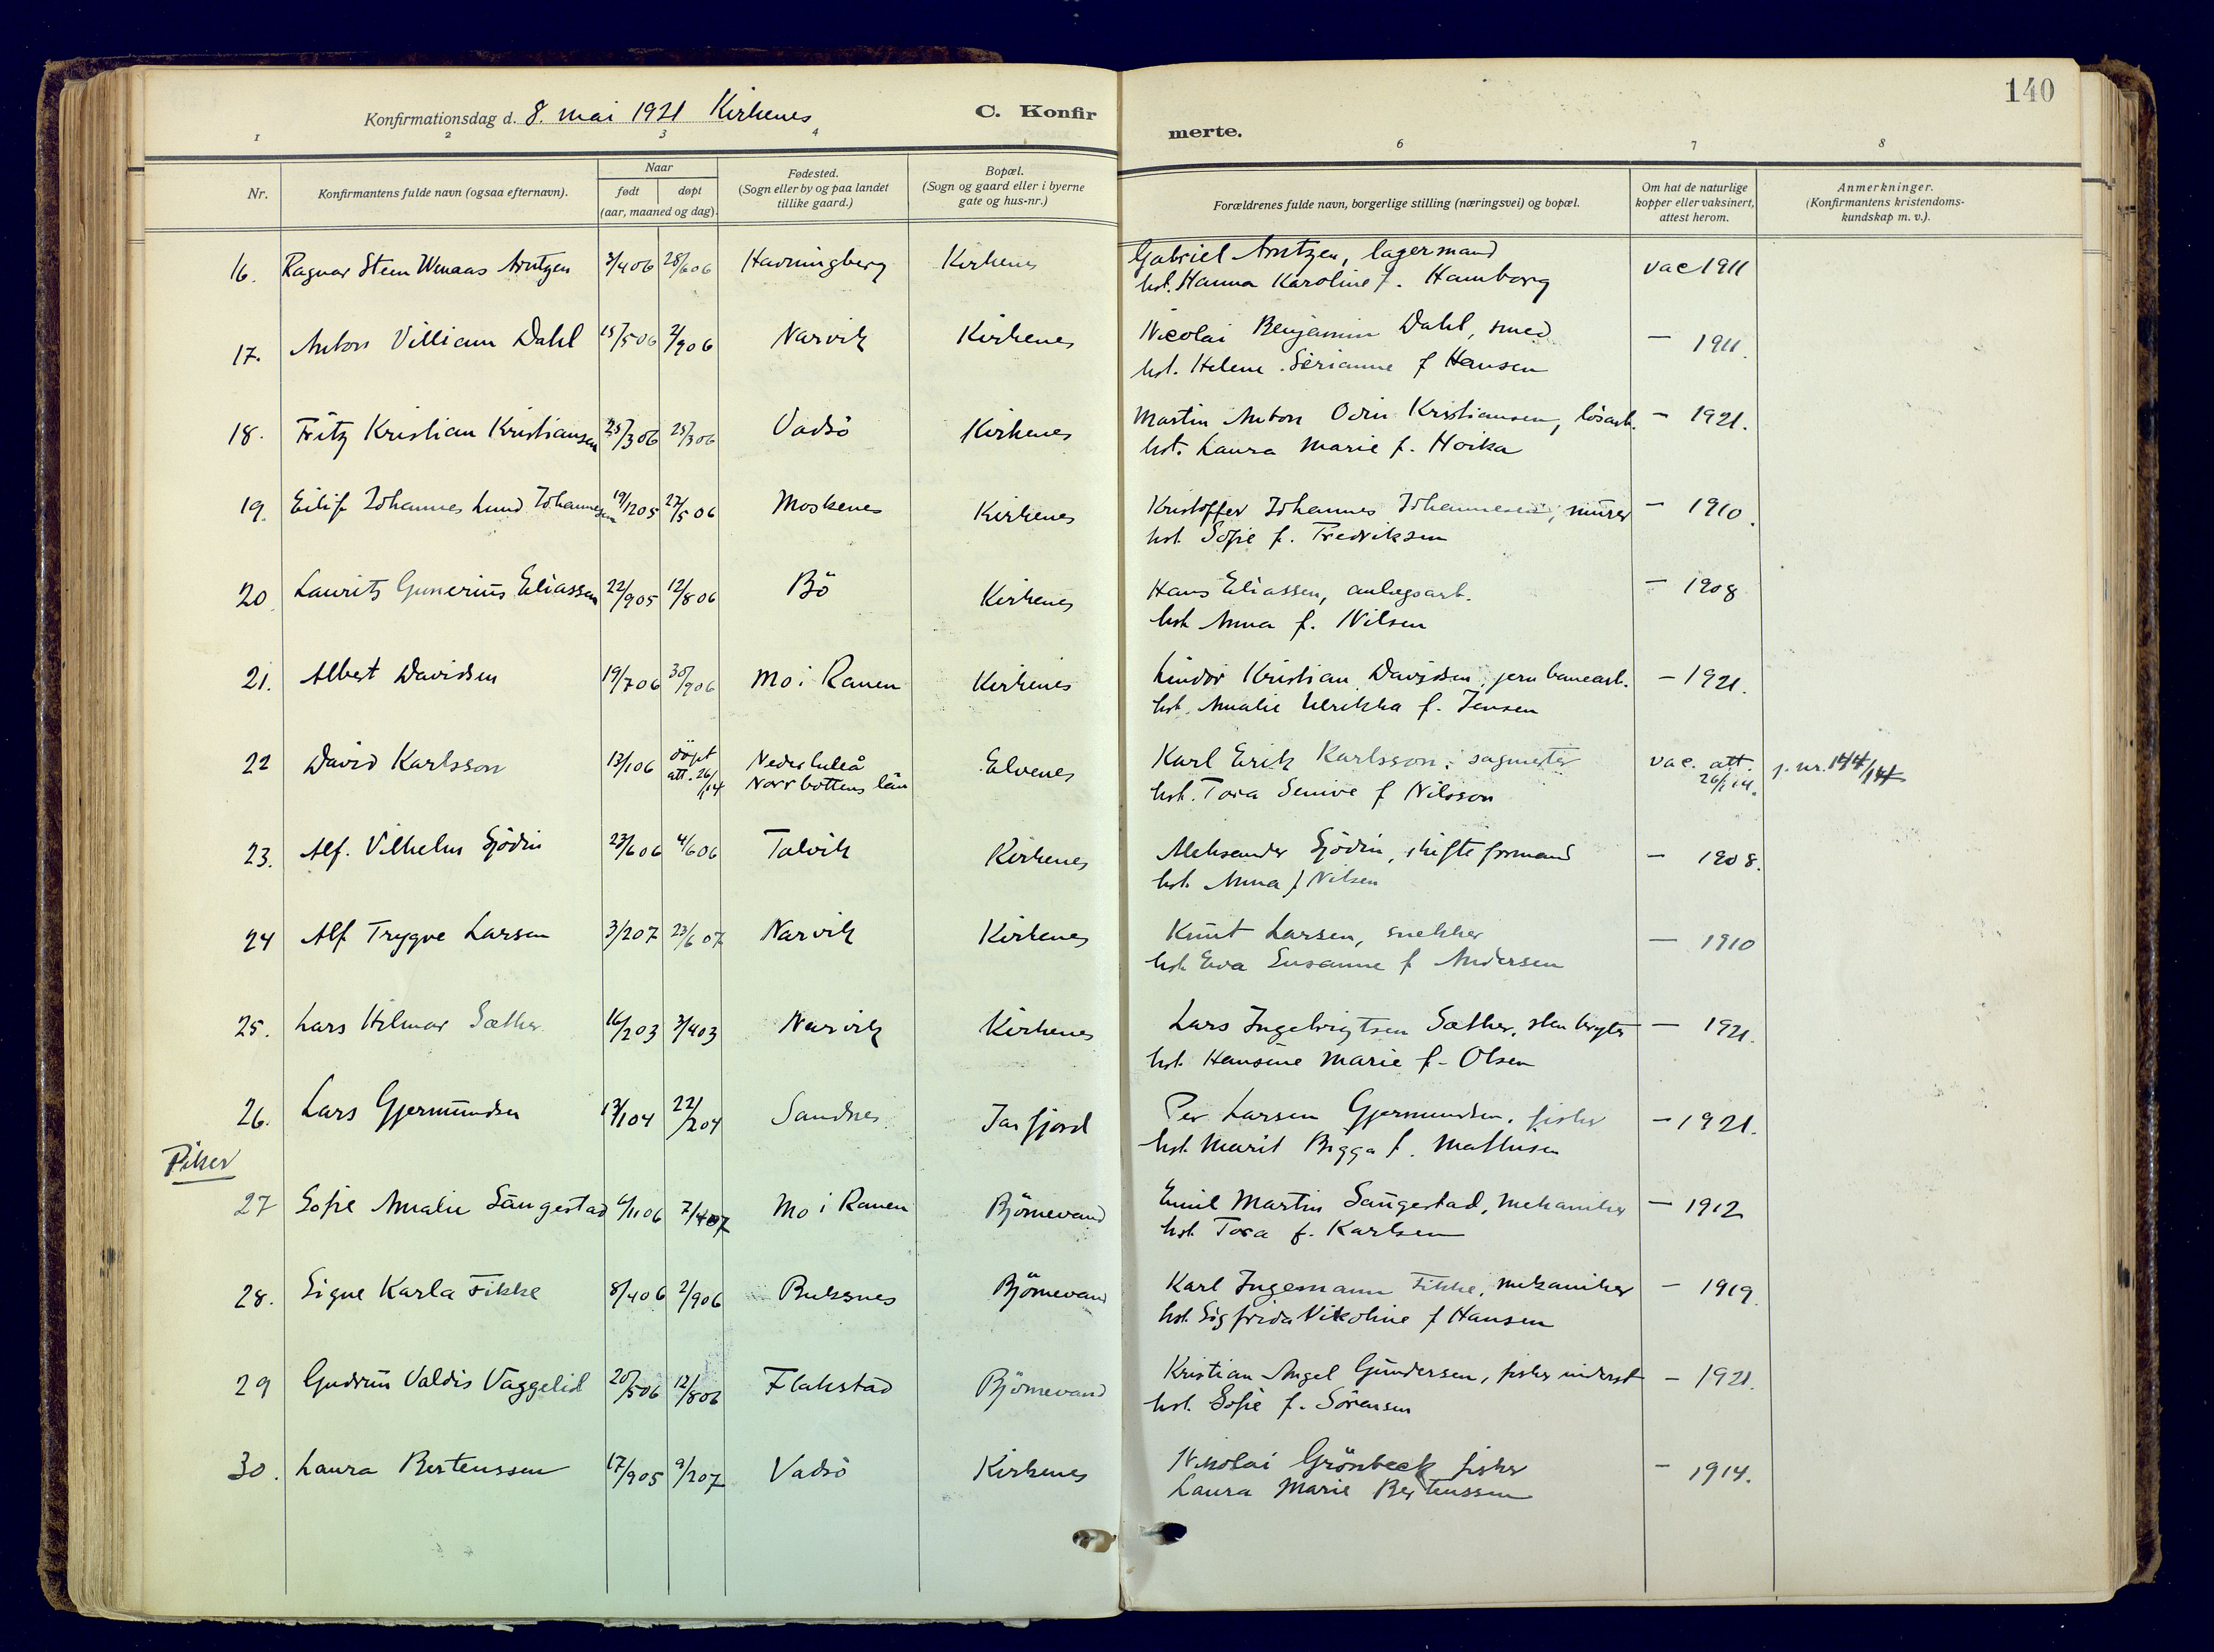 140
Konfirmationsdag d. 8. mai 1921 Kirkenes
C. Konfirmerte.
1 2 3 4 6 7 8
Nr. Konfirmantens fulde navn (ogsaa efternavn). Naar født døpt (aar, maaned og dag). Fødested. (Sogn eller by og paa landet tillike gaard.) Bopæl. (Sogn og gaard eller i byerne gate og hus-nr.) Forældrenes fulde navn, borgerlige stilling (næringsvei) og bopæl. Om hat de naturlige kopper eller vaksinert, attest herom. Anmerkninger. (Konfirmantens kristendomskundskap m. v.).
16. Ragnar Steen Wenaas Arntzen 3/4 06 28/6 06 Havningberg Kirkenes Gabriel Arntzen, lagermand vac 1911
hst. Hanna Karoline f. Hamborg
17. Anton Villiam Dahl 15/5 06 2/9 06 Narvik Kirkenes Nicolai Benjamin Dahl, smed — 1911.
hst. Helene Serianne f Hansen
18. Fritz Kristian Kristiansen 25/3 06 25/3 06 Vadsö Kirkenes Martin Anton Odin Kristiansen, lösarb. — 1921.
hst. Laura Marie f. Hoika
19. Eilif Johannes Lund Johannesen 19/12 05 27/5 06 Moskenes Kirkenes Kristoffer Johannes Johannesen, murer — 1910.
hst. Sofie f. Fredriksen
20 Laurits Gunerius Eliassen 22/9 05 12/8 06 Bö Kirkenes Hans Eliassen, anlegsarb. — 1908
hst Anna f. Nilsen
21. Albert Davidsen 19/7 06 30/9 06 Mo i Ranen Kirkenes Lindor Kristian Davidsen, jernbanearb. — 1921.
hst. Amalie Ulrikka f. Jensen
22 David Karlsson 13/1 06 döpt att. 26/1 14 Nederluleå Norrbottens län Elvenes Karl Erik Karlsson, sagmester vac. att. 26/1 14. j. nr. 144/14
hst. Tora f Nilsson
23. Alf. Vilhelm Sjödin 23/6 06 4/6 06 Talvik Kirkenes Aleksander Sjödin, skifteformand — 1908.
hst. Anna f Nilsen
24 Alf Trygve Larsen 3/2 07 23/6 07 Narvik Kirkenes Knut Larsen, snekker — 1910
hst Eva Susanne f Andersen
25. Lars Hilmar Sæther 16/2 03 3/4 03 Narvik Kirkenes Lars Ingebrigtsen Sæther, stenbryter — 1921.
hst. Hansine Marie f. Olsen
26. Lars Gjermundsen 13/1 04 22/2 04 Sandnes Jarfjord Per Larsen Gjermundsen, fisker — 1921.
hst. Marit Bigga f. Mathisen
Piker
27 Sofie Amalie Saugestad 6/11 06 7/4 07 Mo i Ranen Björnevand Emil Martin Saugestad, mekaniker — 1912
hst. Tora f. Karlsen
28. Signe Karla Fikke 8/4 06 2/9 06 Buksnes Björnevand Karl Ingemann Fikke, mekaniker — 1919.
hst. Sigfrida Nikoline f Hansen
29 Gudrun Valdis Vaggelid 20/5 06 12/8 06 Flakstad Björnevand Kristian Angel Gundersen, fisker inderst — 1921.
hst. Sofie f. Sörensen
30. Laura Bertenssen 17/9 05 9/2 07 Vadsö Kirkenes Nikolai Grönbeck fisker — 1914.
Laura Marie Bertenssen